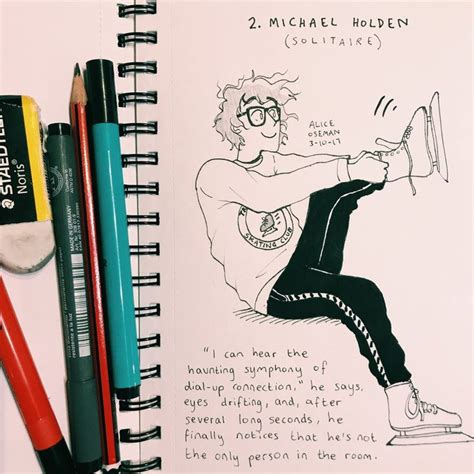 2. MICHAEL HOLDEN
(SOLITAIRE)
ALICE
OSEMAN
3-10-17
SKATING CLUB
STAEDTLER
Noris
MADE IN GERMANY
"I can hear the
haunting symphony of
dial-up connection," he says,
eyes drifting, and, after
several long seconds, he
finally notices that he's not
the only person in the room.